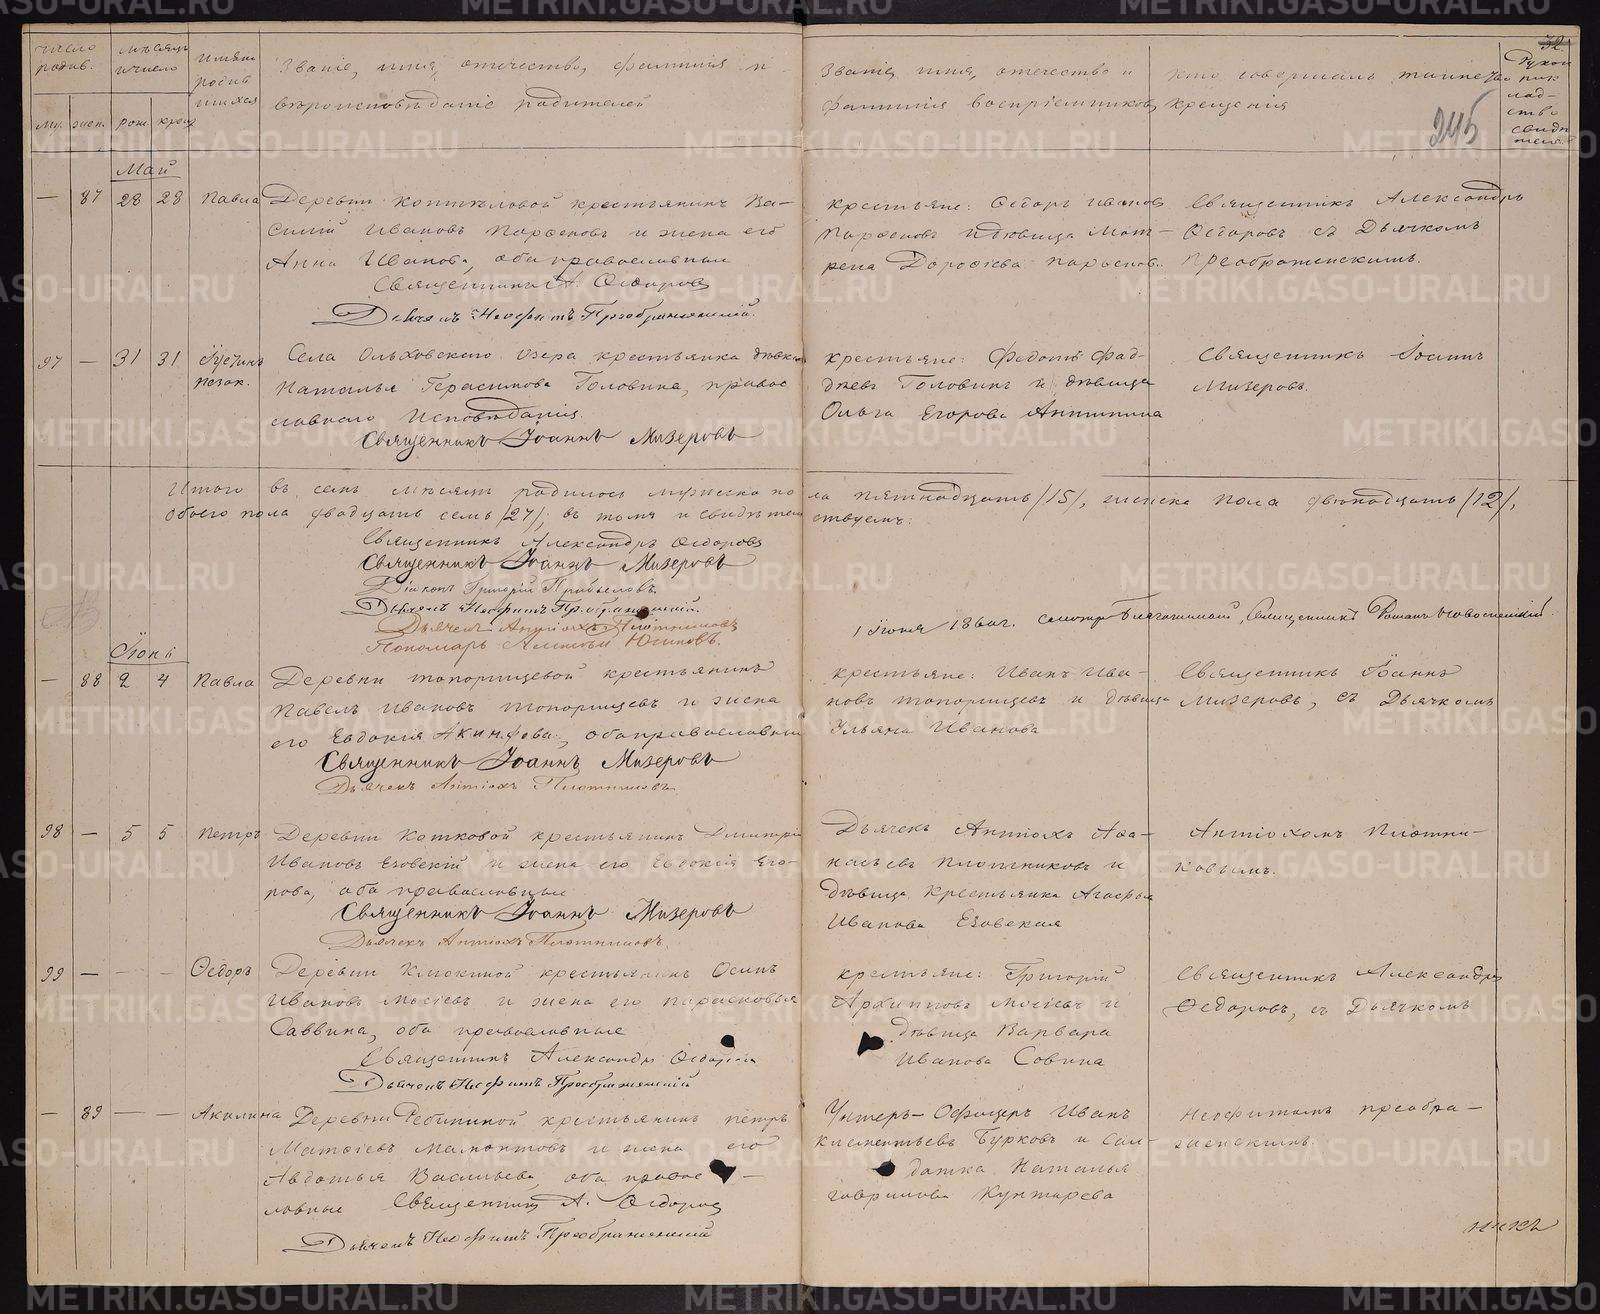 число родив.
мѣсяцъ и число
имена родившихся
Званіе, имя, отечество, фамилія и
вѣроисповѣданіе родителей
Званіе, имя, отечество и
фамилія воспріемниковъ
кто совершалъ таинство
крещенія
Рукоприкладство свидѣтелей
му. жен. рож. крещ
32
245
Май
— 87 28 28 Павла
Деревни Коптѣловой крестьянинъ Ва-
силій Ивановъ Парѳеновъ и жена его
Анна Иванова, оба православные
Священникъ А. Ѳедоровъ
Дьячекъ Неофитъ Преображенскій.
крестьяне: Ѳедоръ Ивановъ
Парѳеновъ и дѣвица Мат-
рена Дороѳіева Парѳенов.
Священникъ Александръ
Ѳедоровъ съ Дьячкомъ
Преображенскимъ.
97 — 31 31 Іустинъ незак.
Села Ольховскаго озера крестьянка дѣвка
Наталья Герасимова Головина, правос
славнаго исповѣданія
Священникъ Іоаннъ Мизеровъ
крестьяне: Федотъ Фад-
дѣевъ Головинъ и дѣвица
Ольга Егорова Антипина
Священникъ Іоаннъ
Мизеровъ.
Итого въ семъ мѣсяцѣ родилось мужеска пола пятнадцать /15/, женска пола двѣнадцать /12/,
обоего пола двадцать семь /27/; въ томъ и свидѣтельствуемъ:
Священникъ Александръ Ѳедоровъ
Священникъ Іоаннъ Мизеровъ
Діаконъ Григорій
Дьячекъ Неофитъ Преображенскій.
Дьячекъ Антіохъ Плотниковъ
Пономарь Алексѣй
1 Іюня 186 г. смотрѣлъ Благочинный, Священникъ Романъ
Іюнь
— 88 2 4 Павла
Деревни Топорищевой крестьянинъ
Павелъ Ивановъ Топорищевъ и жена
его Евдокія Акинфова, оба православные
Священникъ Іоаннъ Мизеровъ
Дьячекъ Антіохъ Плотниковъ.
крестьяне: Иванъ Ива-
новъ Топорищевъ и дѣвица
Ульяна Иванова
Священникъ Іоаннъ
Мизеровъ, съ Дьячкомъ
98 — 5 5 Петръ
Деревни Котковой крестьянинъ Дмитрій
Ивановъ Езовскій и жена его Евдокія Его-
рова, оба православные
Священникъ Іоаннъ Мизеровъ
Дьячекъ Антіохъ Плотниковъ.
Дьячекъ Антіохъ Аѳа-
насьевъ Плотниковъ и
дѣвица крестьянка Агафья
Иванова Езовская
Антіохомъ Плотни-
ковымъ.
99 — — — Ѳедоръ
Деревни Клюкиной крестьянинъ Осипъ
Ивановъ Мосіевъ и жена его Парасковья
Саввина, оба православные
Священникъ Александръ Ѳедоровъ
Дьячекъ Неофитъ Преображенскій
крестьяне: Григорій
Архиповъ Мосіевъ и
дѣвица Варвара
Иванова Совина
Священникъ Александръ
Ѳедоровъ, съ Дьячкомъ
— 89 — — Акилина
Деревни Рябининой крестьянинъ Петръ
Матѳіевъ Мамонтовъ и жена его
Авдотья Васильева, оба правос-
лавные Священникъ А. Ѳедоровъ
Дьячекъ Неофитъ Преображенскій
Унтеръ-Офицеръ Иванъ
Клементьевъ Бурковъ и сол-
датка Наталья
Гаврилова Кунгарева
Неофитомъ Преобра-
женскимъ.
METRIKI.GASO-URAL.RU